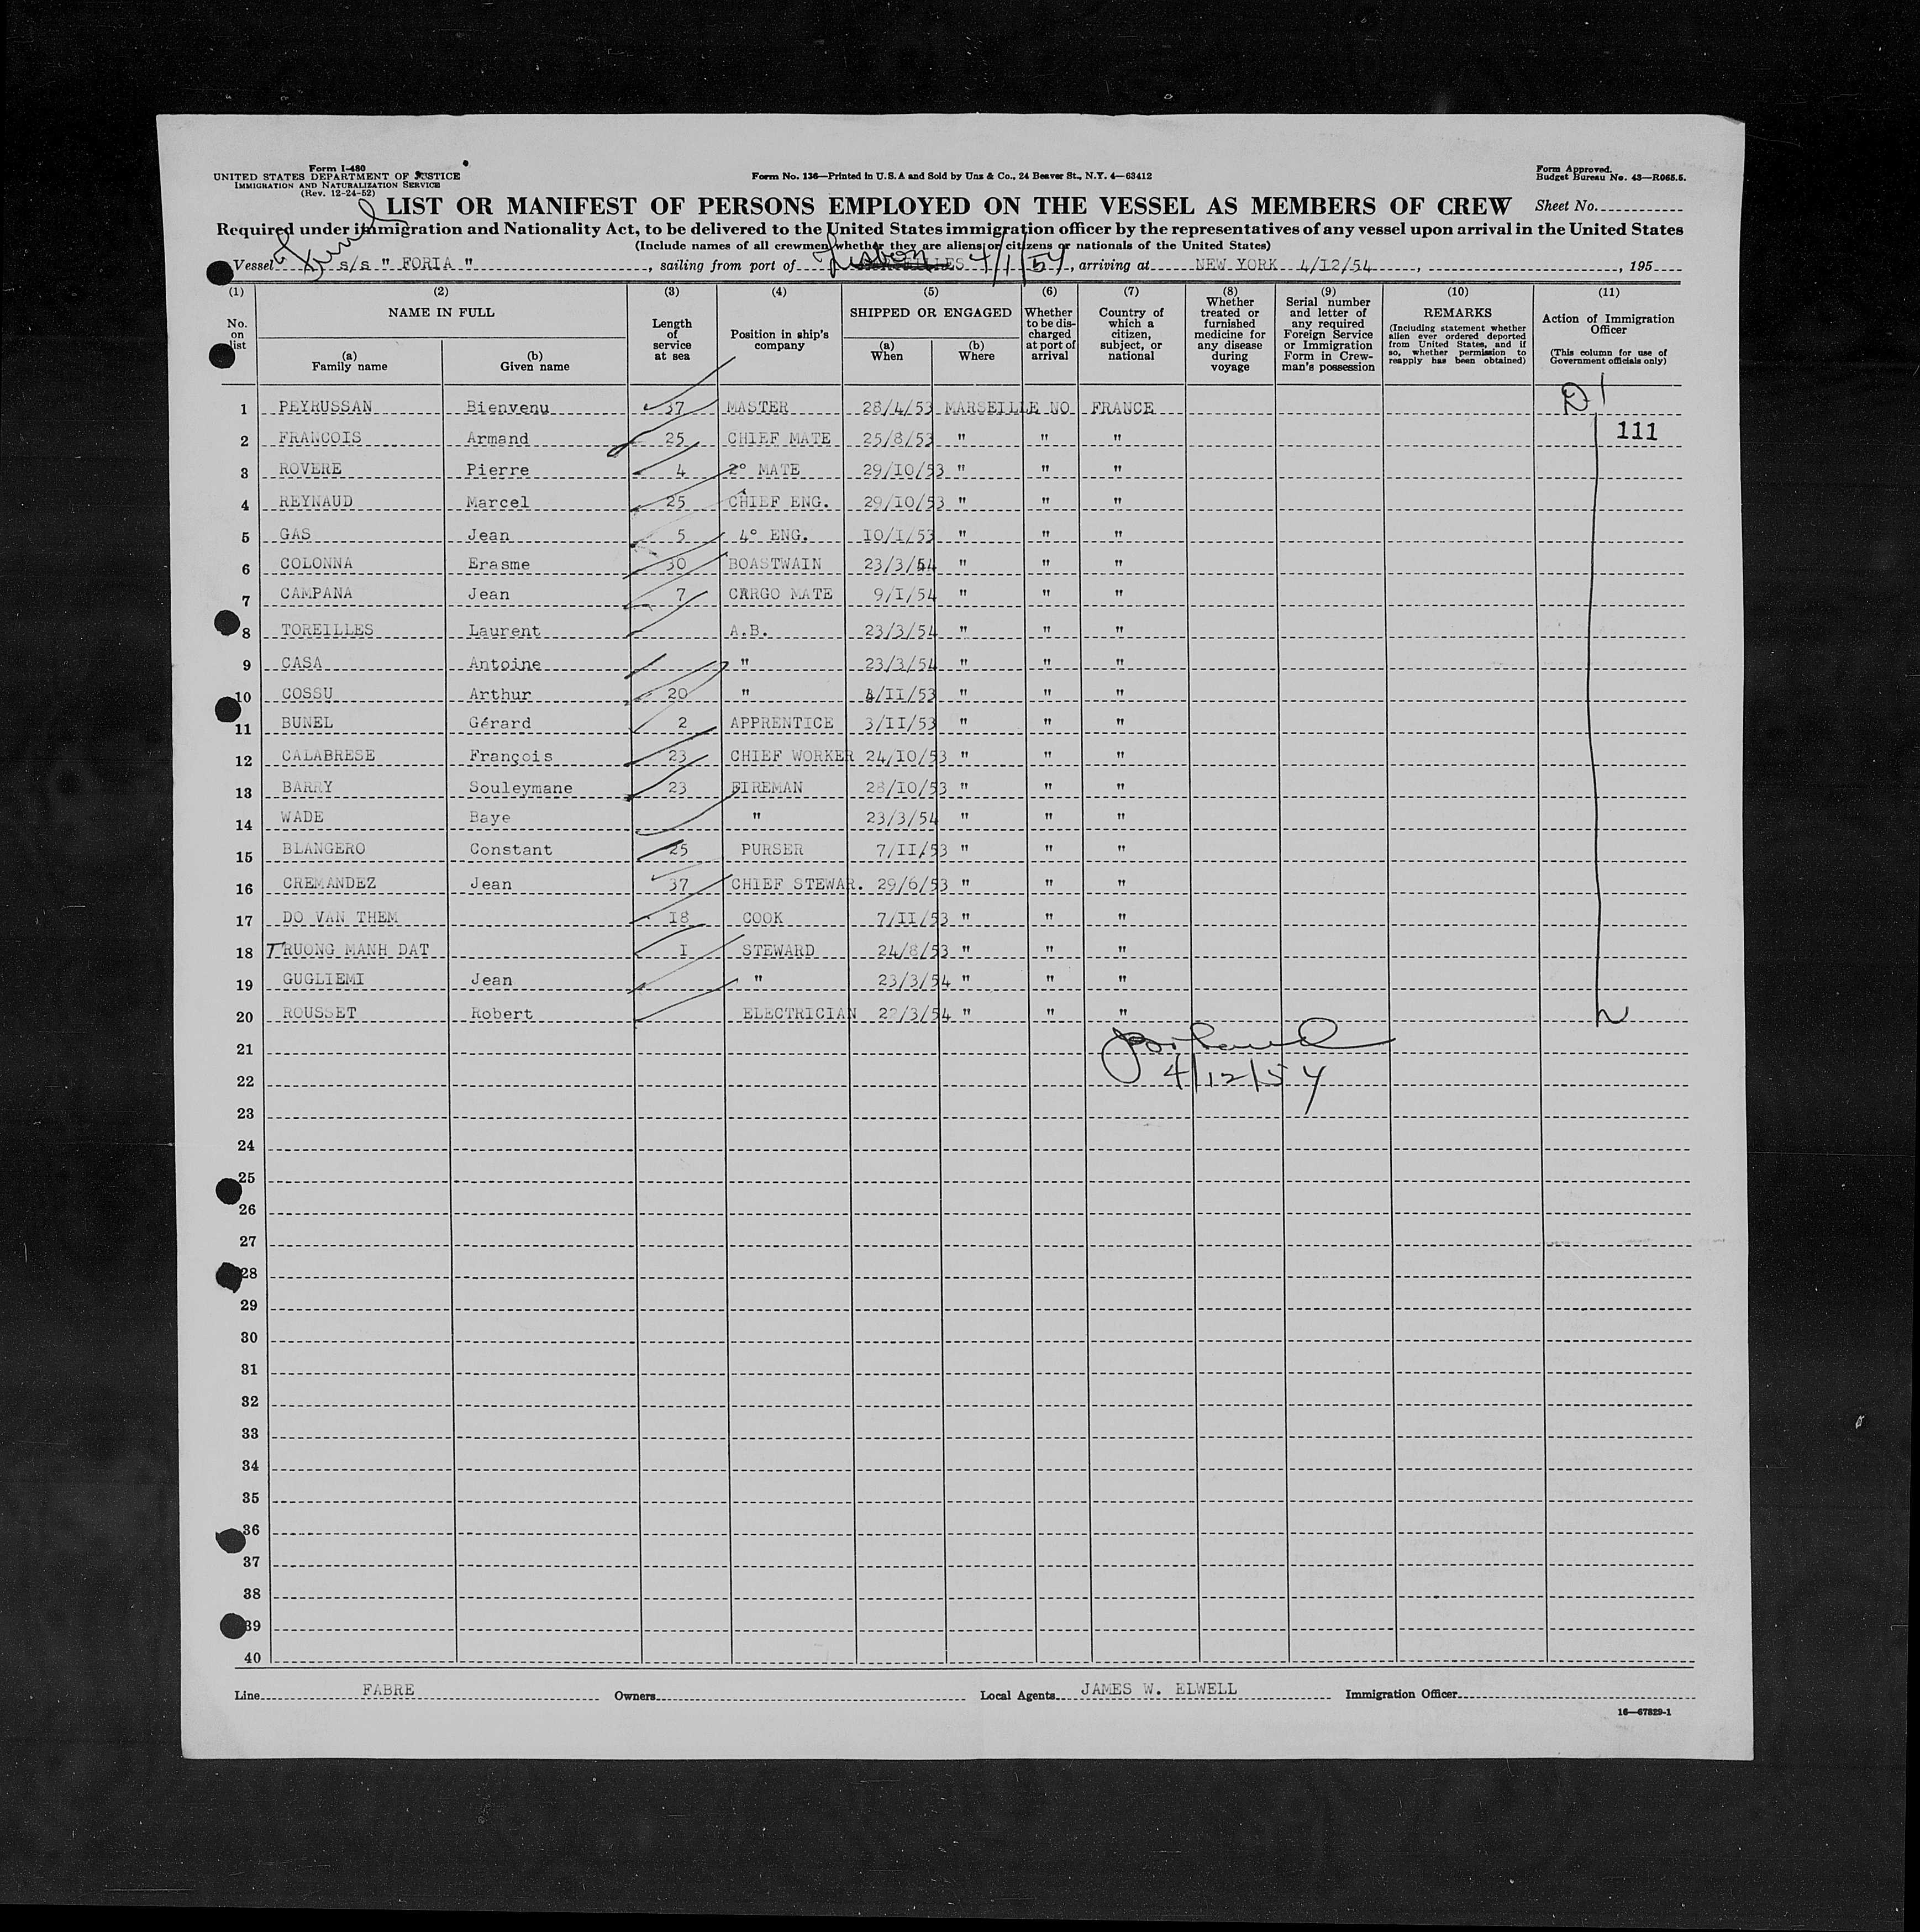 Form I-480
UNITED STATES DEPARTMENT OF JUSTICE
IMMIGRATION AND NATURALIZATION SERVICE
(Rev. 12-24-52)
Form No. 136—Printed in U.S.A and Sold by Unz & Co., 24 Beaver St., N.Y. 4—63412
Form Approved.
Budget Bureau No. 43—R065.5.
LIST OR MANIFEST OF PERSONS EMPLOYED ON THE VESSEL AS MEMBERS OF CREW Sheet No.
Required under immigration and Nationality Act, to be delivered to the United States immigration officer by the representatives of any vessel upon arrival in the United States
(Include names of all crewmen whether they are aliens or citizens or nationals of the United States)
Vessel French s/s " FORIA ", sailing from port of Lisbon 4/1/54, arriving at NEW YORK 4/12/54, , 195
(1) (2) (3) (4) (5) (6) (7) (8) (9) (10) (11)
No. on list
NAME IN FULL
(a) Family name
(b) Given name
Length of service at sea
Position in ship's company
SHIPPED OR ENGAGED
(a) When
(b) Where
Whether to be discharged at port of arrival
Country of which a citizen, subject, or national
Whether treated or furnished medicine for any disease during voyage
Serial number and letter of any required Foreign Service or Immigration Form in Crewman's possession
REMARKS
(Including statement whether alien ever ordered deported from United States, and if so, whether permission to reapply has been obtained)
Action of Immigration Officer
(This column for use of Government officials only)
1 PEYRUSSAN Bienvenu 37 MASTER 28/4/53 MARSEILLE NO FRANCE D1
2 FRANCOIS Armand 25 CHIEF MATE 25/8/53 " " " 111
3 ROVERE Pierre 4 2° MATE 29/10/53 " " "
4 REYNAUD Marcel 25 CHIEF ENG. 29/10/53 " " "
5 GAS Jean 5 4° ENG. 10/I/53 " " "
6 COLONNA Erasme 30 BOASTWAIN 23/3/54 " " "
7 CAMPANA Jean 7 CARGO MATE 9/I/54 " " "
8 TOREILLES Laurent A.B. 23/3/54 " " "
9 CASA Antoine " 23/3/54 " " "
10 COSSU Arthur 20 " 4/II/53 " " "
11 BUNEL Gérard 2 APPRENTICE 3/II/53 " " "
12 CALABRESE François 23 CHIEF WORKER 24/10/53 " " "
13 BARRY Souleymane 23 FIREMAN 28/10/53 " " "
14 WADE Baye " 23/3/54 " " "
15 BLANGERO Constant 25 PURSER 7/II/53 " " "
16 CREMANDEZ Jean 37 CHIEF STEWAR. 29/6/53 " " "
17 DO VAN THEM 18 COOK 7/II/53 " " "
18 TRUONG MANH DAT I STEWARD 24/8/53 " " "
19 GUGLIEMI Jean " 23/3/54 " " "
20 ROUSSET Robert ELECTRICIAN 22/3/54 " " "
21
22 4/12/54
23
24
25
26
27
28
29
30
31
32
33
34
35
36
37
38
39
40
Line FABRE Owners Local Agents JAMES W. ELWELL Immigration Officer
16—67829-1